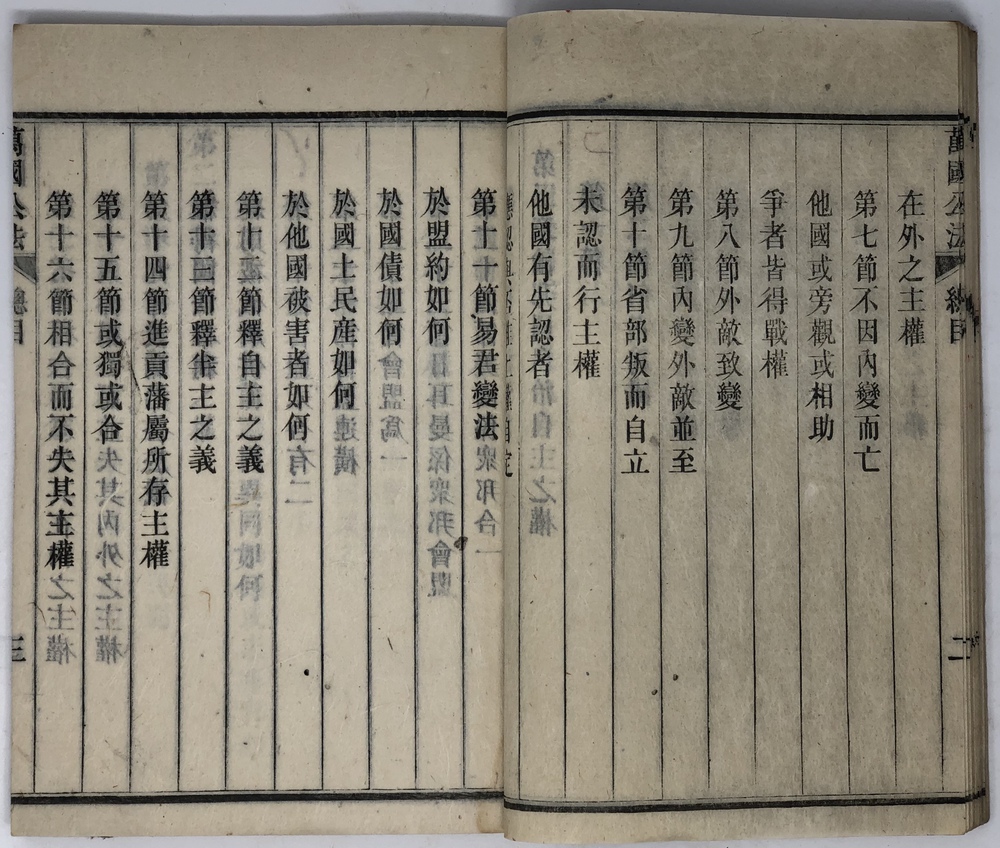 萬國公法
總目
二
在外之主權
第七節不因內變而亡
他國或旁觀或相助
爭者皆得戰權
第八節外敵致變
第九節內變外敵並至
第十節省部叛而自立
未認而行主權
他國有先認者
第十一節易君變法
於盟約如何
於國債如何
於國土民產如何
於他國被害者如何有二
第十二節釋自主之義
第十三節釋半主之義
第十四節進貢藩屬所存主權
第十五節或獨或合
第十六節相合而不失其主權
萬國公法
總目
三